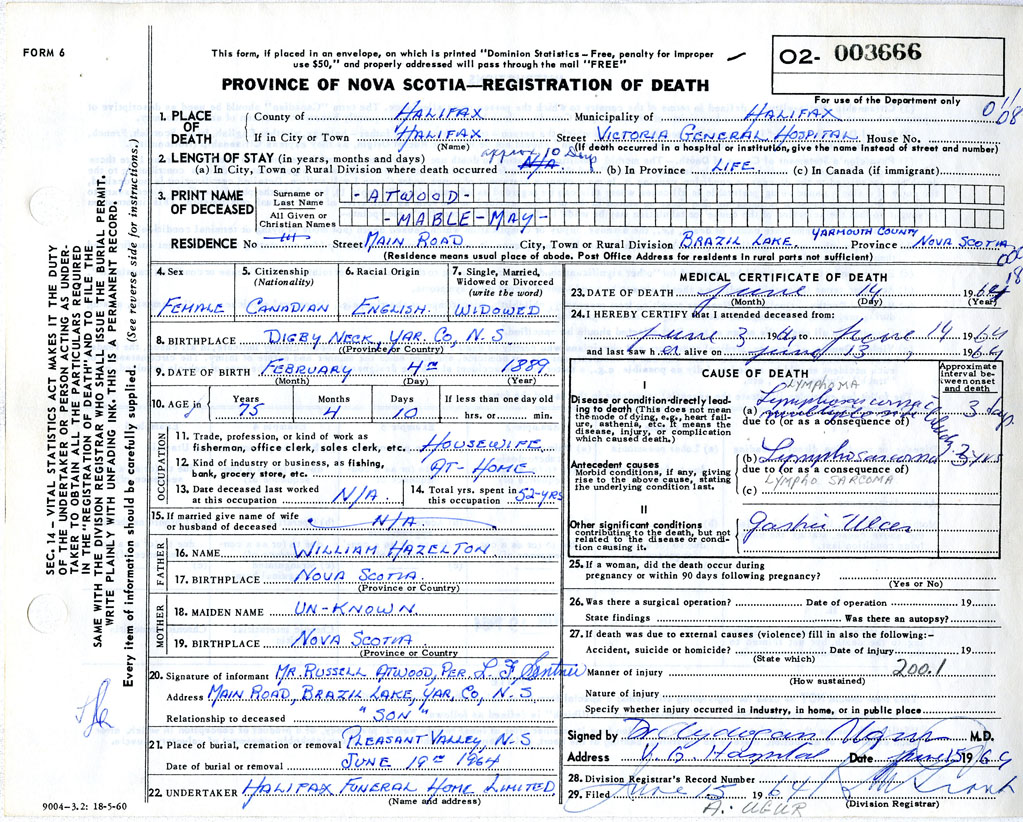 FORM 6
This form, if placed in an envelope, on which is printed "Dominion Statistics – Free, penalty for improper
use $50," and properly addressed will pass through the mail "FREE"
PROVINCE OF NOVA SCOTIA—REGISTRATION OF DEATH
O2- 003666
For use of the Department only
1. PLACE OF DEATH
County of HALIFAX Municipality of HALIFAX
If in City or Town HALIFAX Street VICTORIA GENERAL HOSPITAL House No.
(Name) (If death occurred in a hospital or institution, give the name instead of street and number)
2. LENGTH OF STAY (in years, months and days) approx 10 days
(a) In City, Town or Rural Division where death occurred N/A (b) In Province LIFE (c) In Canada (if immigrant)
3. PRINT NAME OF DECEASED
Surname or Last Name -ATWOOD-
All Given or Christian Names -MABLE-MAY-
RESIDENCE No Street MAIN ROAD City, Town or Rural Division BRAZIL LAKE YARMOUTH COUNTY Province NOVA SCOTIA
(Residence means usual place of abode. Post Office Address for residents in rural parts not sufficient)
4. Sex FEMALE
5. Citizenship (Nationality) CANADIAN
6. Racial Origin ENGLISH
7. Single, Married, Widowed or Divorced (write the word) WIDOWED
8. BIRTHPLACE DIGBY NECK, YAR. CO, N.S
(Province or Country)
9. DATE OF BIRTH FEBRUARY 4TH 1889
(Month) (Day) (Year)
10. AGE in Years 75 Months 4 Days 10 If less than one day old hrs. or min.
OCCUPATION
11. Trade, profession, or kind of work as
fisherman, office clerk, sales clerk, etc. HOUSEWIFE
12. Kind of industry or business, as fishing,
bank, grocery store, etc. AT-HOME
13. Date deceased last worked
at this occupation N/A
14. Total yrs. spent in
this occupation 52-YRS
15. If married give name of wife
or husband of deceased N/A
FATHER
16. NAME WILLIAM HAZELTON
17. BIRTHPLACE NOVA SCOTIA
(Province or Country)
MOTHER
18. MAIDEN NAME UN-KNOWN
19. BIRTHPLACE NOVA SCOTIA
(Province or Country
20. Signature of informant MR. RUSSELL ATWOOD, PER. L F
Address MAIN ROAD, BRAZIL LAKE, YAR, CO, N.S
Relationship to deceased "SON"
21. Place of burial, cremation or removal PLEASANT VALLEY, N-S
Date of burial or removal JUNE 1964
22. UNDERTAKER HALIFAX FUNERAL HOME LIMITED
(Name and address)
9004-3.2: 18-5-60
MEDICAL CERTIFICATE OF DEATH
23. DATE OF DEATH June 14 1964
(Month) (Day) (Year)
24. I HEREBY CERTIFY that I attended deceased from:
June 3 1964 to June 14 1964
and last saw her alive on June 13, 1964
CAUSE OF DEATH
Approximate interval between onset and death
I
Disease or condition directly leading to death (This does not mean the mode of dying, e.g., heart failure, asthenia, etc. It means the disease, injury, or complication which caused death.)
LYMPHOMA
(a) Lymphosarcoma 3 days
due to (or as a consequence of)
Antecedent causes
Morbid conditions, if any, giving rise to the above cause, stating the underlying condition last.
(b) Lymphosarcoma 3 yrs
due to (or as a consequence of)
LYMPHO SARCOMA
(c)
II
Other significant conditions
contributing to the death, but not related to the disease or condition causing it.
Gastric Ulcer
25. If a woman, did the death occur during
pregnancy or within 90 days following pregnancy?
(Yes or No)
26. Was there a surgical operation? Date of operation 19
State findings Was there an autopsy?
27. If death was due to external causes (violence) fill in also the following:–
Accident, suicide or homicide? Date of injury 19
(State which)
Manner of injury 200.1
(How sustained)
Nature of injury
Specify whether injury occurred in industry, in home, or in public place
Signed by Dr Aydogan Ugur M.D.
Address V. G. Hospital Date June 15 1964
28. Division Registrar's Record Number
29. Filed June 15 1964
A. UGUR (Division Registrar)
SEC. 14 – VITAL STATISTICS ACT MAKES IT THE DUTY
OF THE UNDERTAKER OR PERSON ACTING AS UNDER-
TAKER TO OBTAIN ALL THE PARTICULARS REQUIRED
IN THE "REGISTRATION OF DEATH" AND TO FILE THE
SAME WITH THE DIVISION REGISTRAR WHO SHALL ISSUE THE BURIAL PERMIT.
WRITE PLAINLY WITH UNFADING INK. THIS IS A PERMANENT RECORD.
Every item of information should be carefully supplied. (See reverse side for instructions.)